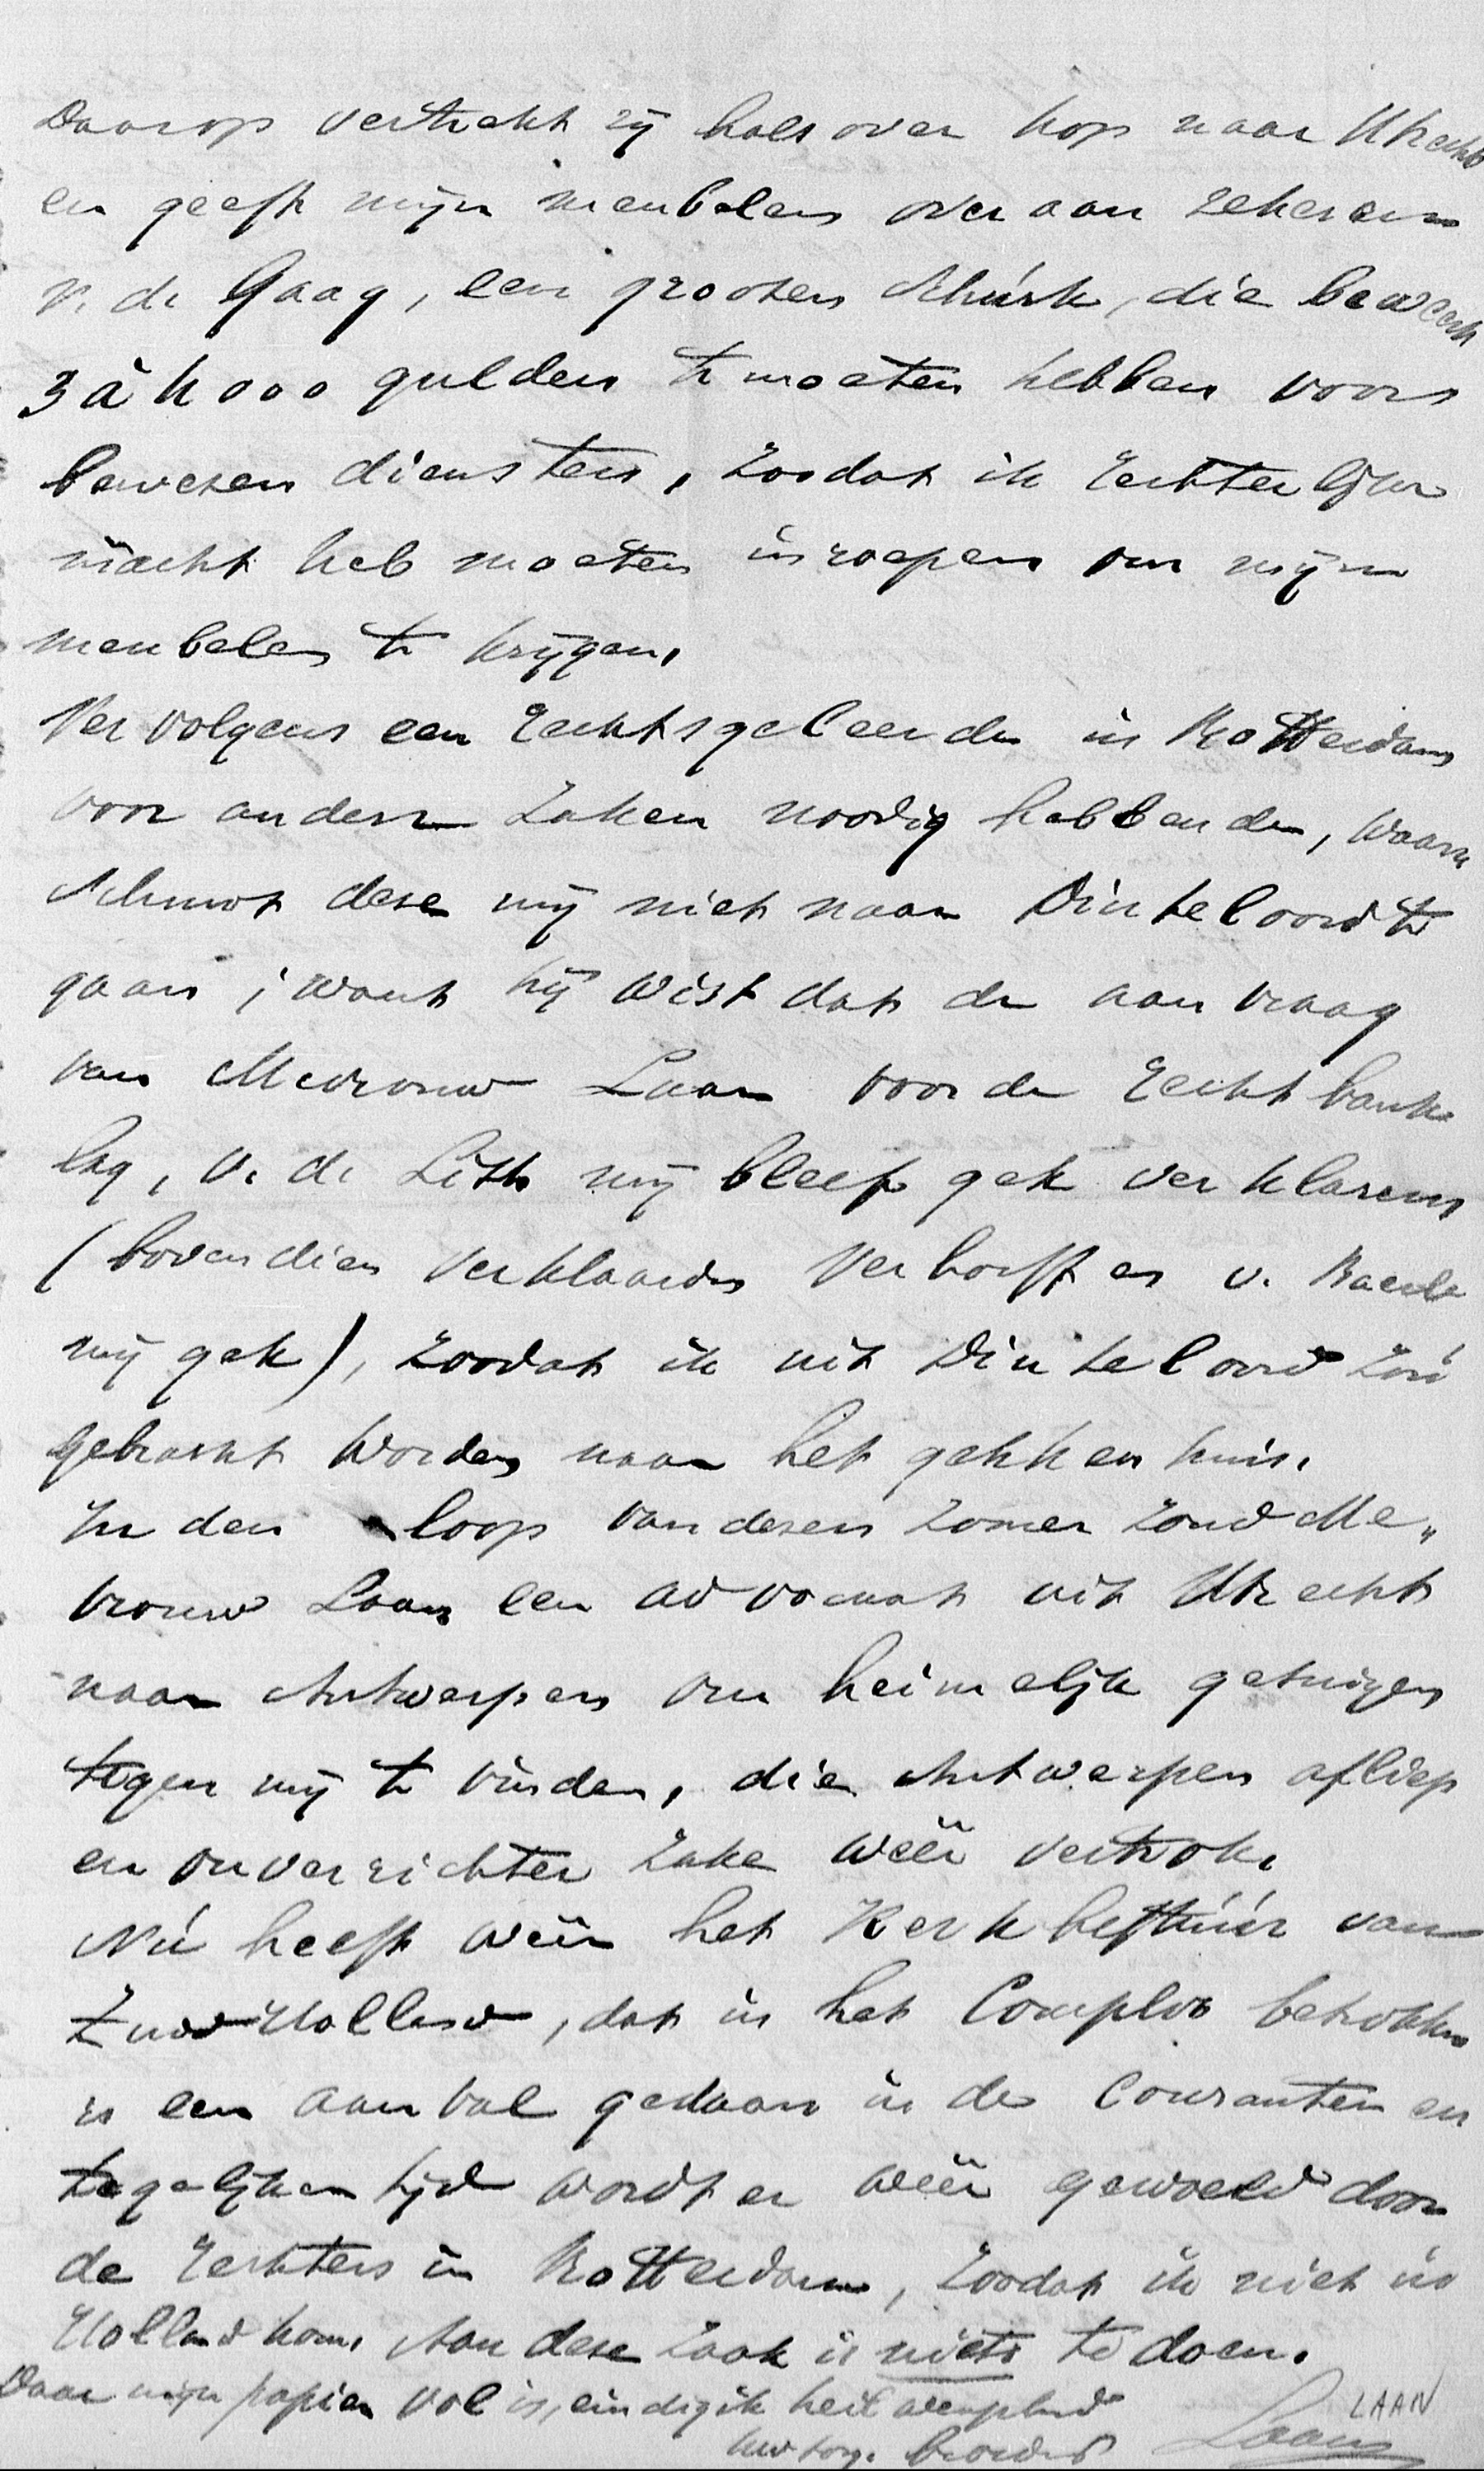 Daarop vertrekt zij hals over kop naar Utrecht
en geeft mijn meubelen over aan zekeren
v. de Gaag, een grooten schurk, die beweert
3 à 4000 gulden te moeten hebben voor
bewezen diensten, zoodat ik rechterlijke
macht heb moeten inroepen om mijn
meubelen te krijgen.
Vervolgens een rechtsgeleerde in Rotterdam
voor andere zaken noodig hebbende, waar
schuwt deze mij niet naar Dinteloord te
gaan; want hij wist dat de aanvraag
van Mevrouw Laan voor de rechtbank
lag, v. de Lith mij bleef gek verklaren
(bovendien verklaarde Verhoeff en v. Baerle
mij gek), zoodat ik uit Dinteloord zou
gebracht worden naar het gekkenhuis.
In den loop van dezen zomer zond Me„
vrouw Laan een advocaat uit Utrecht
naar Antwerpen om heimelijk getuigen
tegen mij te vinden, die Antwerpen afliep
en onverrichter zake weêr vertrok.
Nú heeft weêr het Kerkbestúúr van
Zuid Holland, dat in het Complot betrokken
is een aanval gedaan in de Couranten en
tegelijkertijd wordt er weêr gewoeld door
de rechters in Rotterdam, zoodat ik niet in
Holland kom. Aan deze zaak is niets te doen.
Daar mijn papier vol is, eindig ik heilwenschend
Uw broeder Laan
LAAN